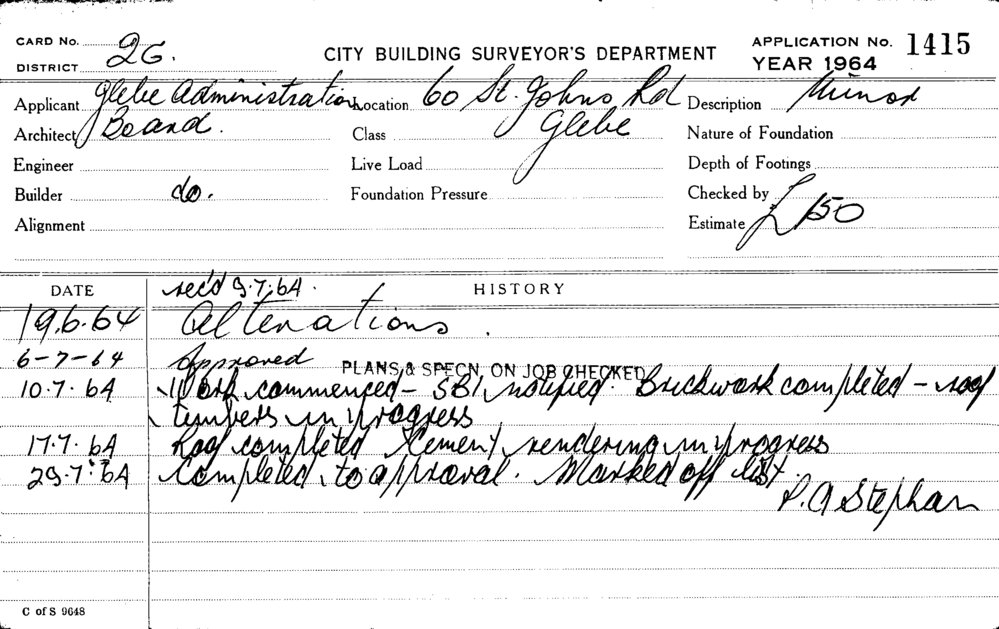 CARD No. 2G. CITY BUILDING SURVEYOR'S DEPARTMENT APPLICATION No. 1415
DISTRICT YEAR 1964
Applicant Glebe Administration Location 60 St. Johns Rd Description Minor
Architect Board. Class Glebe Nature of Foundation
Engineer Live Load Depth of Footings
Builder do. Foundation Pressure Checked by
Alignment Estimate £150
DATE recd 9.7.64. HISTORY
19.6.64 Alterations.
6-7-64 Approved PLANS & SPECN. ON JOB CHECKED
10.7.64 Work commenced - SBI notified. Brickwork completed - roof
timbers in progress
17.7.64 Roof completed Cement rendering in progress
29.7.64 Completed to approval. Marked off list.
P.A Stephan
C of S 9648